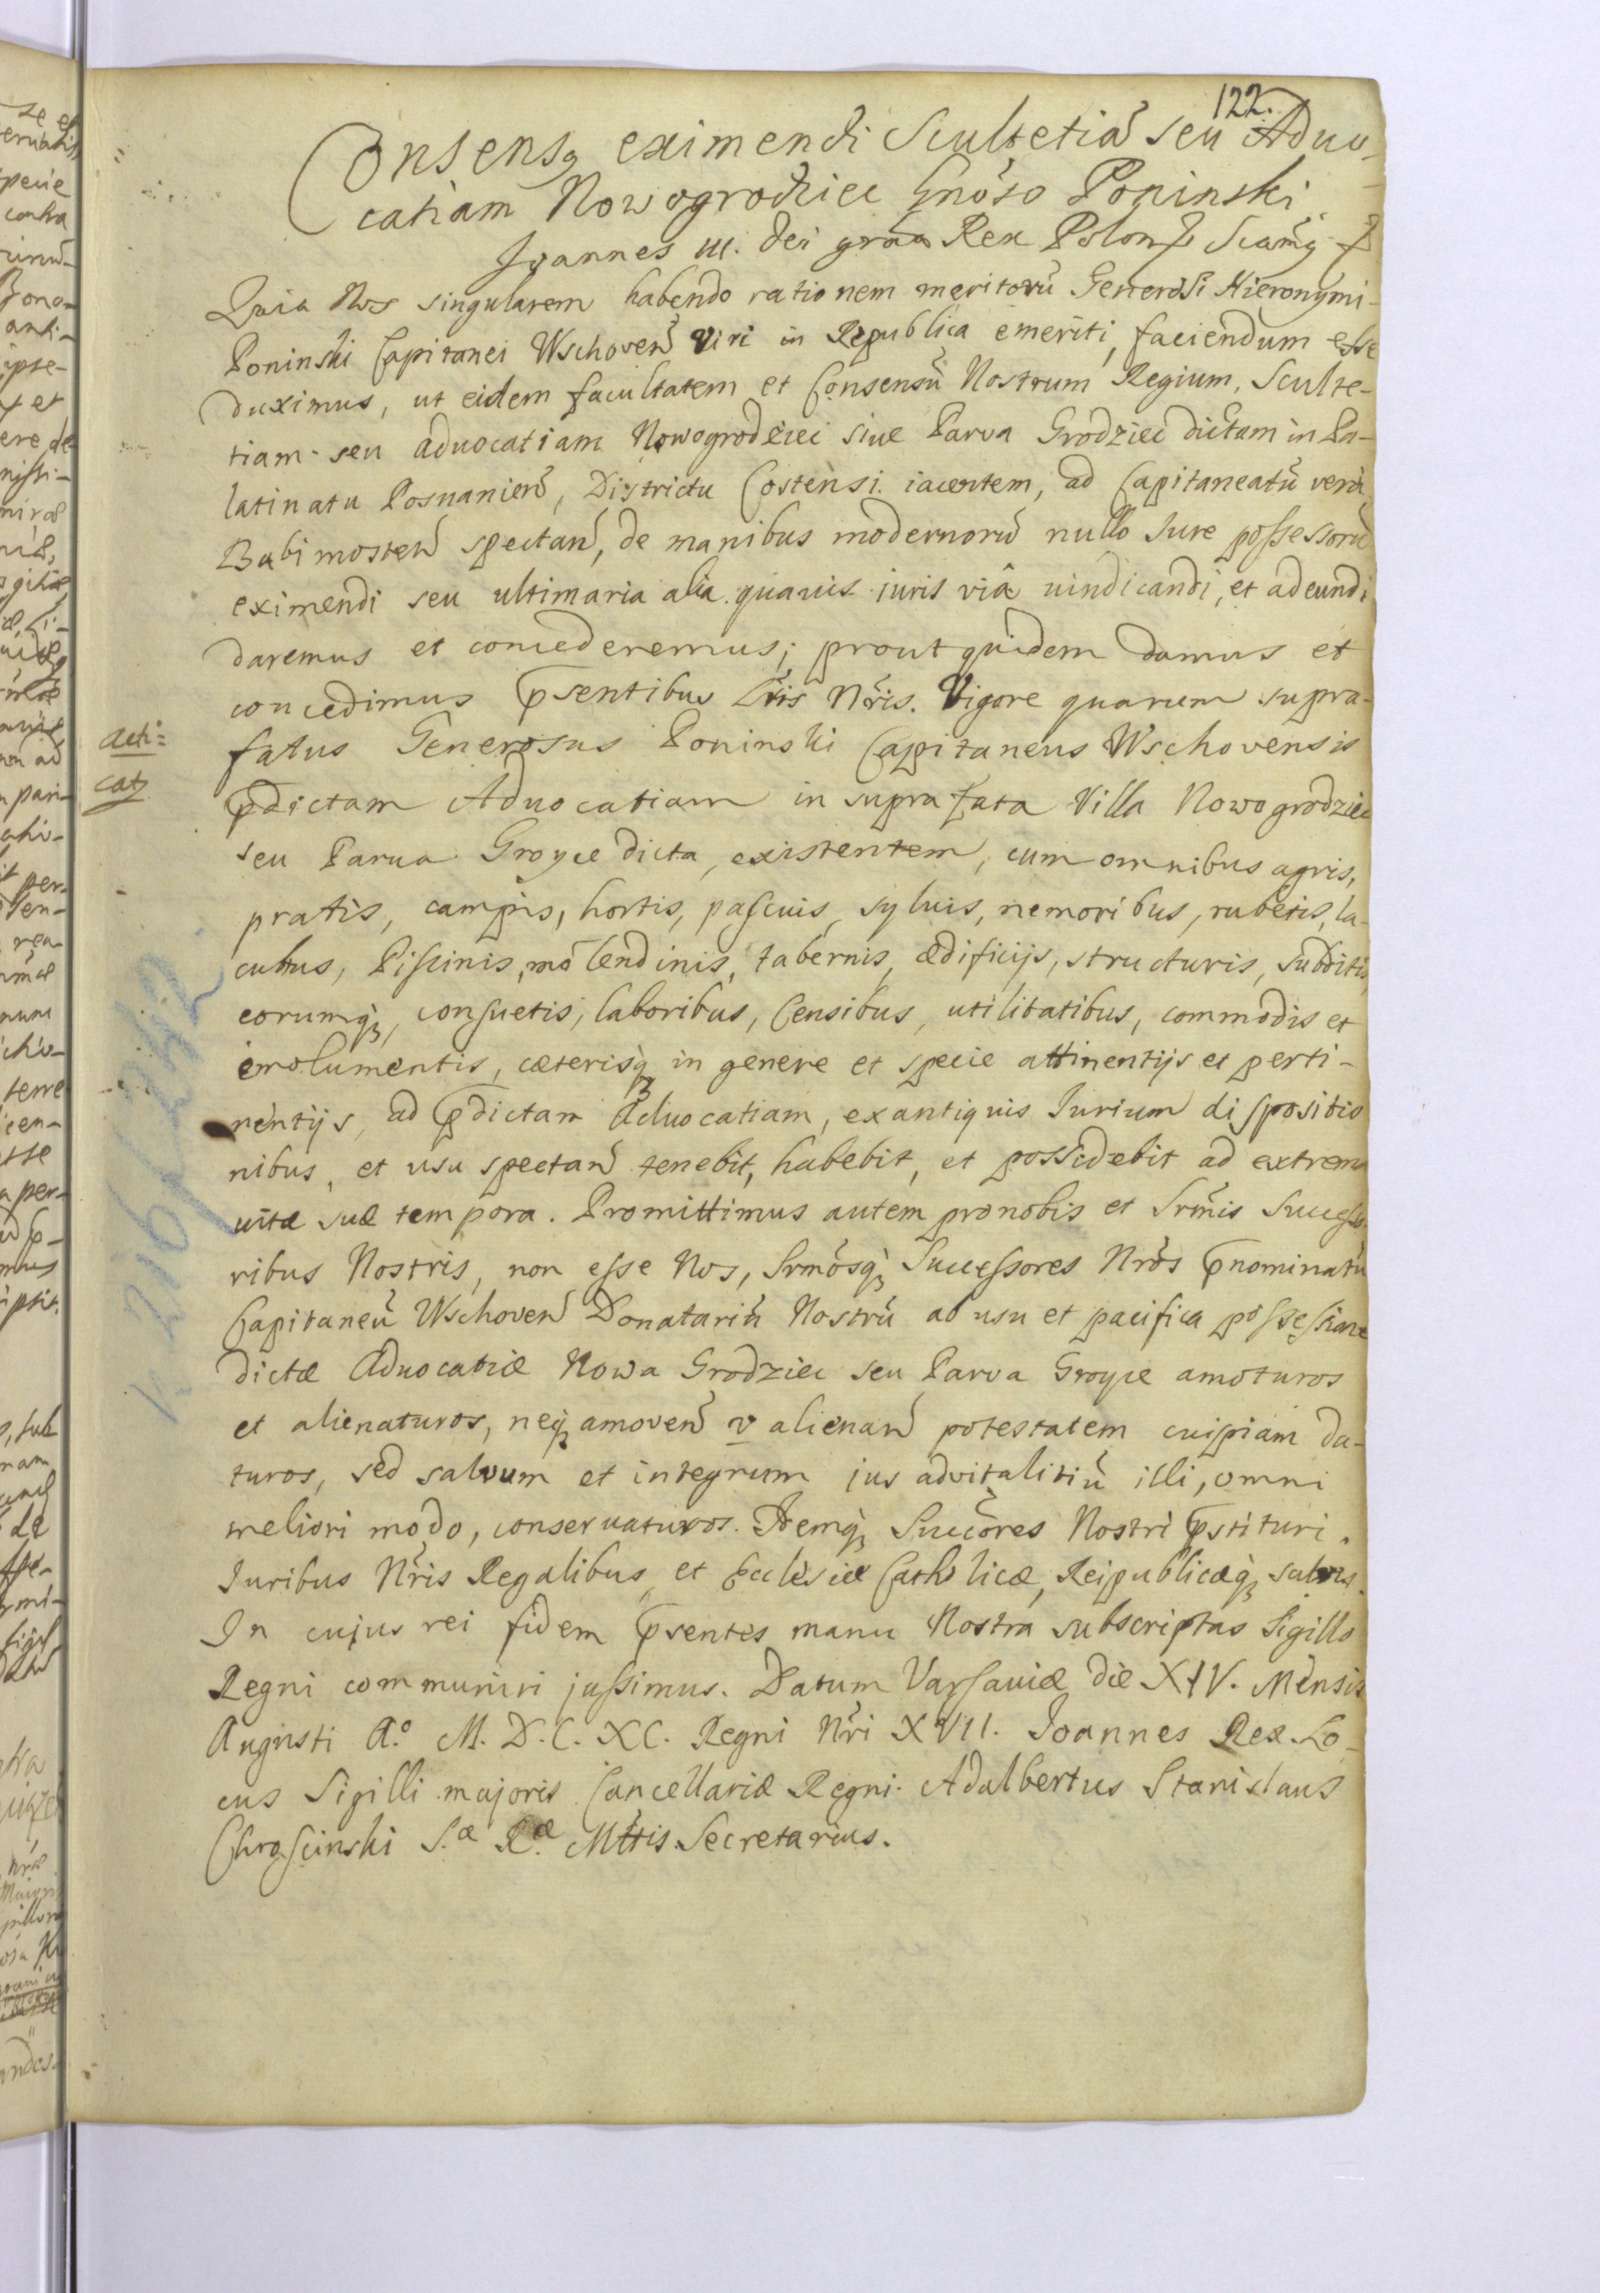 122.
Consensq eximendi Scultetiam̃ seu Aduo-
catiam Nowogrodziec Gnõso Poninski
Joannes III. Dei graã Rex Polon
Quia Nos singularem habendo rationem meritorũ Generosi Hieronymi
Poninski Capitanei Wschoveñ viri in Republica emeriti, faciendum esse
duximus, ut eidem facultatem et Consensũ Nostrum Regium, Sculte-
tiam seu aduocatiam Nowogrodziec siue Parva Grodziec dictam in Pa-
latinatu Posnanieñ, Districtu Costensi iacentem, ad Capitaneatũ verò
Babimosteñ spectañ, de manibus modernorũ nullo Jure possessorũ
eximendi seu ultimaria alia quauis iuris viâ uindicandi, et adeundi
daremus et concederemus; prout quidem damus et
concedimus p̃sentibus Lr̃is Nr̃is. Vigore quarum supra-
fatus Generosus Poninski Capitaneus Wschovensis
p̃dictam Aduocatiam in suprafata Villa Nowogrodziec
seu Parua Groyce dicta, existentem, cum omnibus agris,
pratis, campis, hortis, pascuis, syluis, nemoribus, rubetis, la-
cubus, Piscinis, molendinis, tabernis, ædificijs, structuris, subditis,
eorumq, consuetis, laboribus, Censibus, utilitatibus, commodis et
emolumentis, cæterisq in genere et specie attinentijs et perti-
nentijs, ad p̃dictam Aduocatiam, ex antiquis Jurium dispositio
nibus, et usu spectañ tenebit, habebit, et possidebit ad extrema
uitæ suæ tempora. Promittimus autem pro nobis et Srm̃is Successo
ribus Nostris, non esse Nos, Srmõsq Successores Nrõs p̃nominatũ
Capitaneũ Wschoveñ Donatariũ Nostrũ ab usu et pacifica possessione
dictæ Aduocatiæ Nowa Grodziec seu Parva Groyce amoturos
et alienaturos, neq amoveñ v alienañ potestatem cuipiam da-
turos, sed salvum et integrum jus advitalitiũ illi, omni
meliori modo, conseruaturos. Idemq Succõres Nostri p̃stituri.
Juribus Nr̃is Regalibus, et Ecclesiæ Catholicæ, Reipublicæq salvis.
In cujus rei fidem p̃sentes manu Nostra subscriptas Sigillo
Regni communiri jussimus. Datum Varsauiæ die XIV. Mensis
Augusti Aº. M. D. C. XC. Regni Nr̃i XVII. Joannes Rex. Lo-
cus Sigilli majoris Cancellariæ Regni. Adalbertus Stanislaus
Chroscinski S.æ R.æ Mttis Secretarius.
acti=